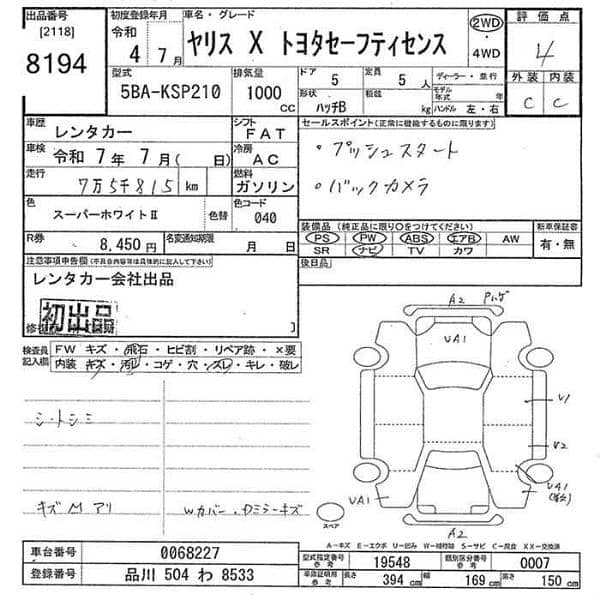 出品番号
[2118]
8194
初度登録年月
令和
4 7月
車名・グレード
ヤリス X トヨタセーフティセンス
2WD
・
4WD
評価点
4
外装 内装
C C
型式
5BA-KSP210
排気量
1000
CC
ドア 5
定員 5 人
ディーラー・並行
形状 ハッチB
積載 kg
モデル年式 年
ハンドル 左・右
車歴 レンタカー
シフト FAT
車検 令和 7年 7月( 日)
冷房 AC
走行 7万5千815 km
燃料 ガソリン
セールスポイント(正常に機能するものに限ります)
・プッシュスタート
・バックカメラ
色 スーパーホワイトⅡ
色替
色コード 040
R券 8,450円
名変通知期限 月 日
装備品 (純正品に限り○をつけてください)
PS PW ABS エアB AW
SR ナビ TV カワ
新車保証書
有・無
後日品
注意事項申告欄(不具合内容は具体的に記入して下さい)
レンタカー会社出品
初出品
検査員記入欄
FW キズ・飛石・ヒビ割・リペア跡・×要
内装 キズ・汚れ・コゲ・穴・スレ・キレ・破レ
シートシミ
キズ M アリ
Wカバー・Dミラーキズ
A2 Pハゲ
UA1
V1
V2
UA1
UA1
A2
スペア
A-キズ E-エクボ U-凹み W-補修跡 S-サビ C-腐食 XX-交換済
車台番号 0068227
登録番号 品川 504 わ 8533
型式指定番号 参考 19548
類別区分番号 参考 0007
車検証明用 参考 長さ 394 cm 幅 169 cm 高さ 150 cm